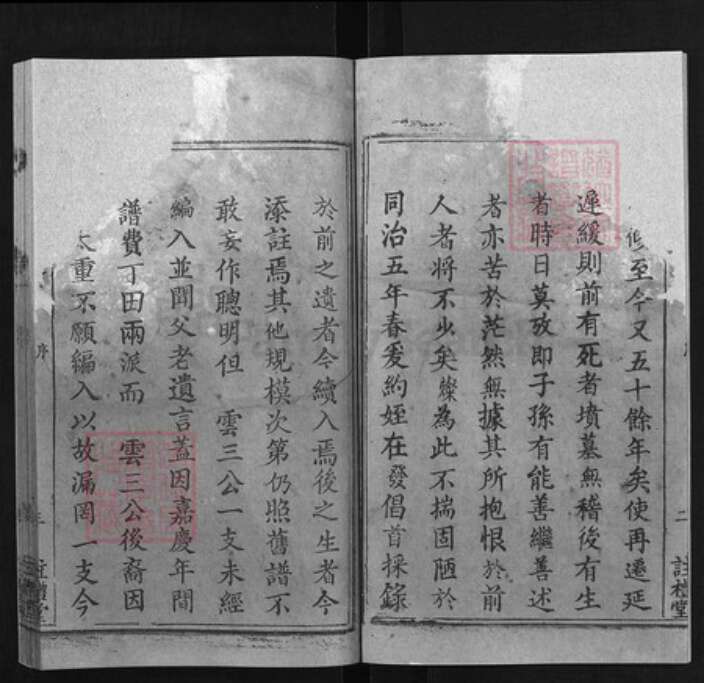 修至今又五十餘年矣使再遷延
遲緩則前有死者墳墓無稽後有生
者時日莫攷即子孫有能善繼善述
者亦苦於茫然無據其所抱恨於前
人者將不少矣燦為此不揣固陋於
同治五年春爰約姪在發倡首採錄
二
於前之遺者今續入焉後之生者今
添註焉其他規模次第仍照舊譜不
敢妄作聰明但 雲三公一支未經
編入並聞父老遺言蓋因嘉慶年間
譜費丁田兩派而 雲三公後裔因
太重不願編入以故漏罔一支今
序
三